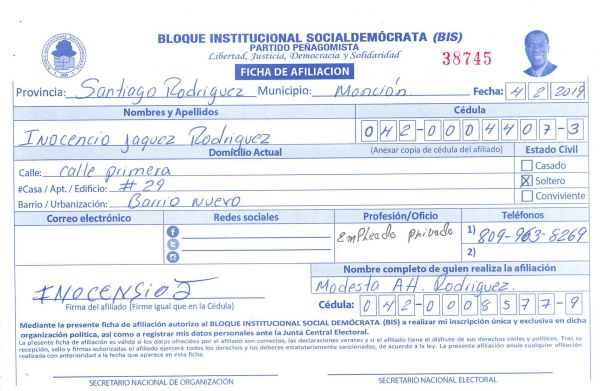 BLOQUE INSTITUCIONAL SOCIALDEMÓCRATA (BIS)
PARTIDO PEÑAGOMISTA
Libertad, Justicia, Democracia y Solidaridad
38745
FICHA DE AFILIACION
Provincia: Santiago Rodriguez Municipio: Monción Fecha: 4/2/2019
Nombres y Apellidos Cédula
Inocencio Jaquez Rodriguez 042-0004407-3
Domicilio Actual (Anexar copia de cédula del afiliado) Estado Civil
Calle: calle primera Casado
#Casa / Apt. / Edificio: # 29 X Soltero
Barrio / Urbanización: Barrio nuevo Conviviente
Correo electrónico Redes sociales Profesión/Oficio Teléfonos
Empleado privado 1) 809-963-8269
2)
Nombre completo de quien realiza la afiliación
INOCENSIO J Modesta Alt. Rodriguez.
Firma del afiliado (Firme igual que en la Cédula) Cédula: 042-0008577-9
Mediante la presente ficha de afiliación autorizo al BLOQUE INSTITUCIONAL SOCIAL DEMÓCRATA (BIS) a realizar mi inscripción única y exclusiva en dicha
organización política, así como a registrar mis datos personales ante la Junta Central Electoral.
La presente ficha de afiliación es válida si los datos ofrecidos por el afiliado son correctos, las declaraciones veraces y si el afiliado tiene el disfrute de sus derechos civiles y políticos. Tras su
recepción, sello y firmas autorizadas el afiliado ejercerá todos los derechos y los deberes estatutariamente sancionados, de acuerdo a la ley. La presente afiliación anula cualquier afiliación
realizada con anterioridad a la fecha que aparece en esta ficha.
SECRETARIO NACIONAL DE ORGANIZACIÓN SECRETARIO NACIONAL ELECTORAL